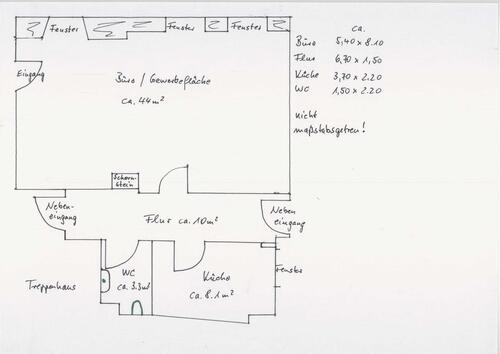 Fenster
Fenster
Fenster
Eingang
Büro / Gewerbefläche
ca. 44 m²
Schorn-
stein
Neben-
eingang
Flur ca. 10 m²
Neben
eingang
WC
ca. 3.3 m²
Küche
ca. 8.1 m²
Fenster
Treppenhaus
ca.
Büro 5,40 x 8.10
Flur 6,70 x 1,50
Küche 3,70 x 2.20
WC 1,50 x 2.20
nicht
maßstabsgetreu!